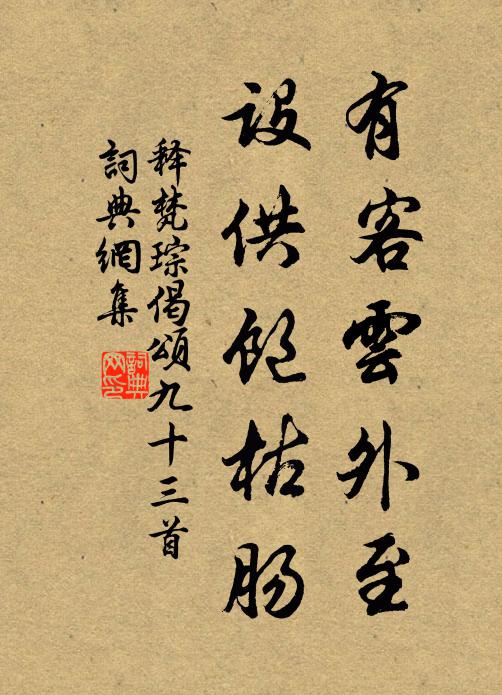 有客雲外至
設供飽枯肠
释梵琮偈頌九十三首
詞典網集
詞典网印